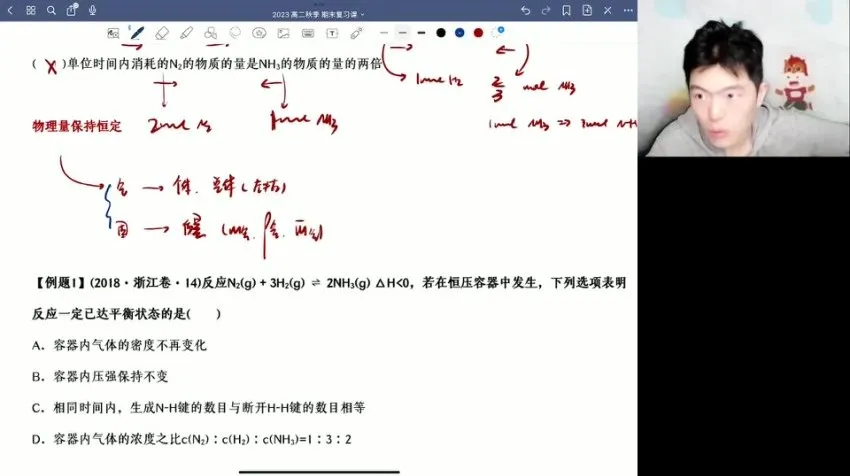 2023 高二秋季 期末复习课
( X )单位时间内消耗的N₂的物质的量是NH₃的物质的量的两倍
1mol H₂ 2/3 mol NH₃
物理量保持恒定 2mol N₂ 1mol NH₃
【例题1】(2018·浙江卷·14)反应N₂(g) + 3H₂(g) ⇌ 2NH₃(g) △H<0，若在恒压容器中发生，下列选项表明
反应一定已达平衡状态的是( )
A．容器内气体的密度不再变化
B．容器内压强保持不变
C．相同时间内，生成N-H键的数目与断开H-H键的数目相等
D．容器内气体的浓度之比c(N₂)∶c(H₂)∶c(NH₃)=1∶3∶2